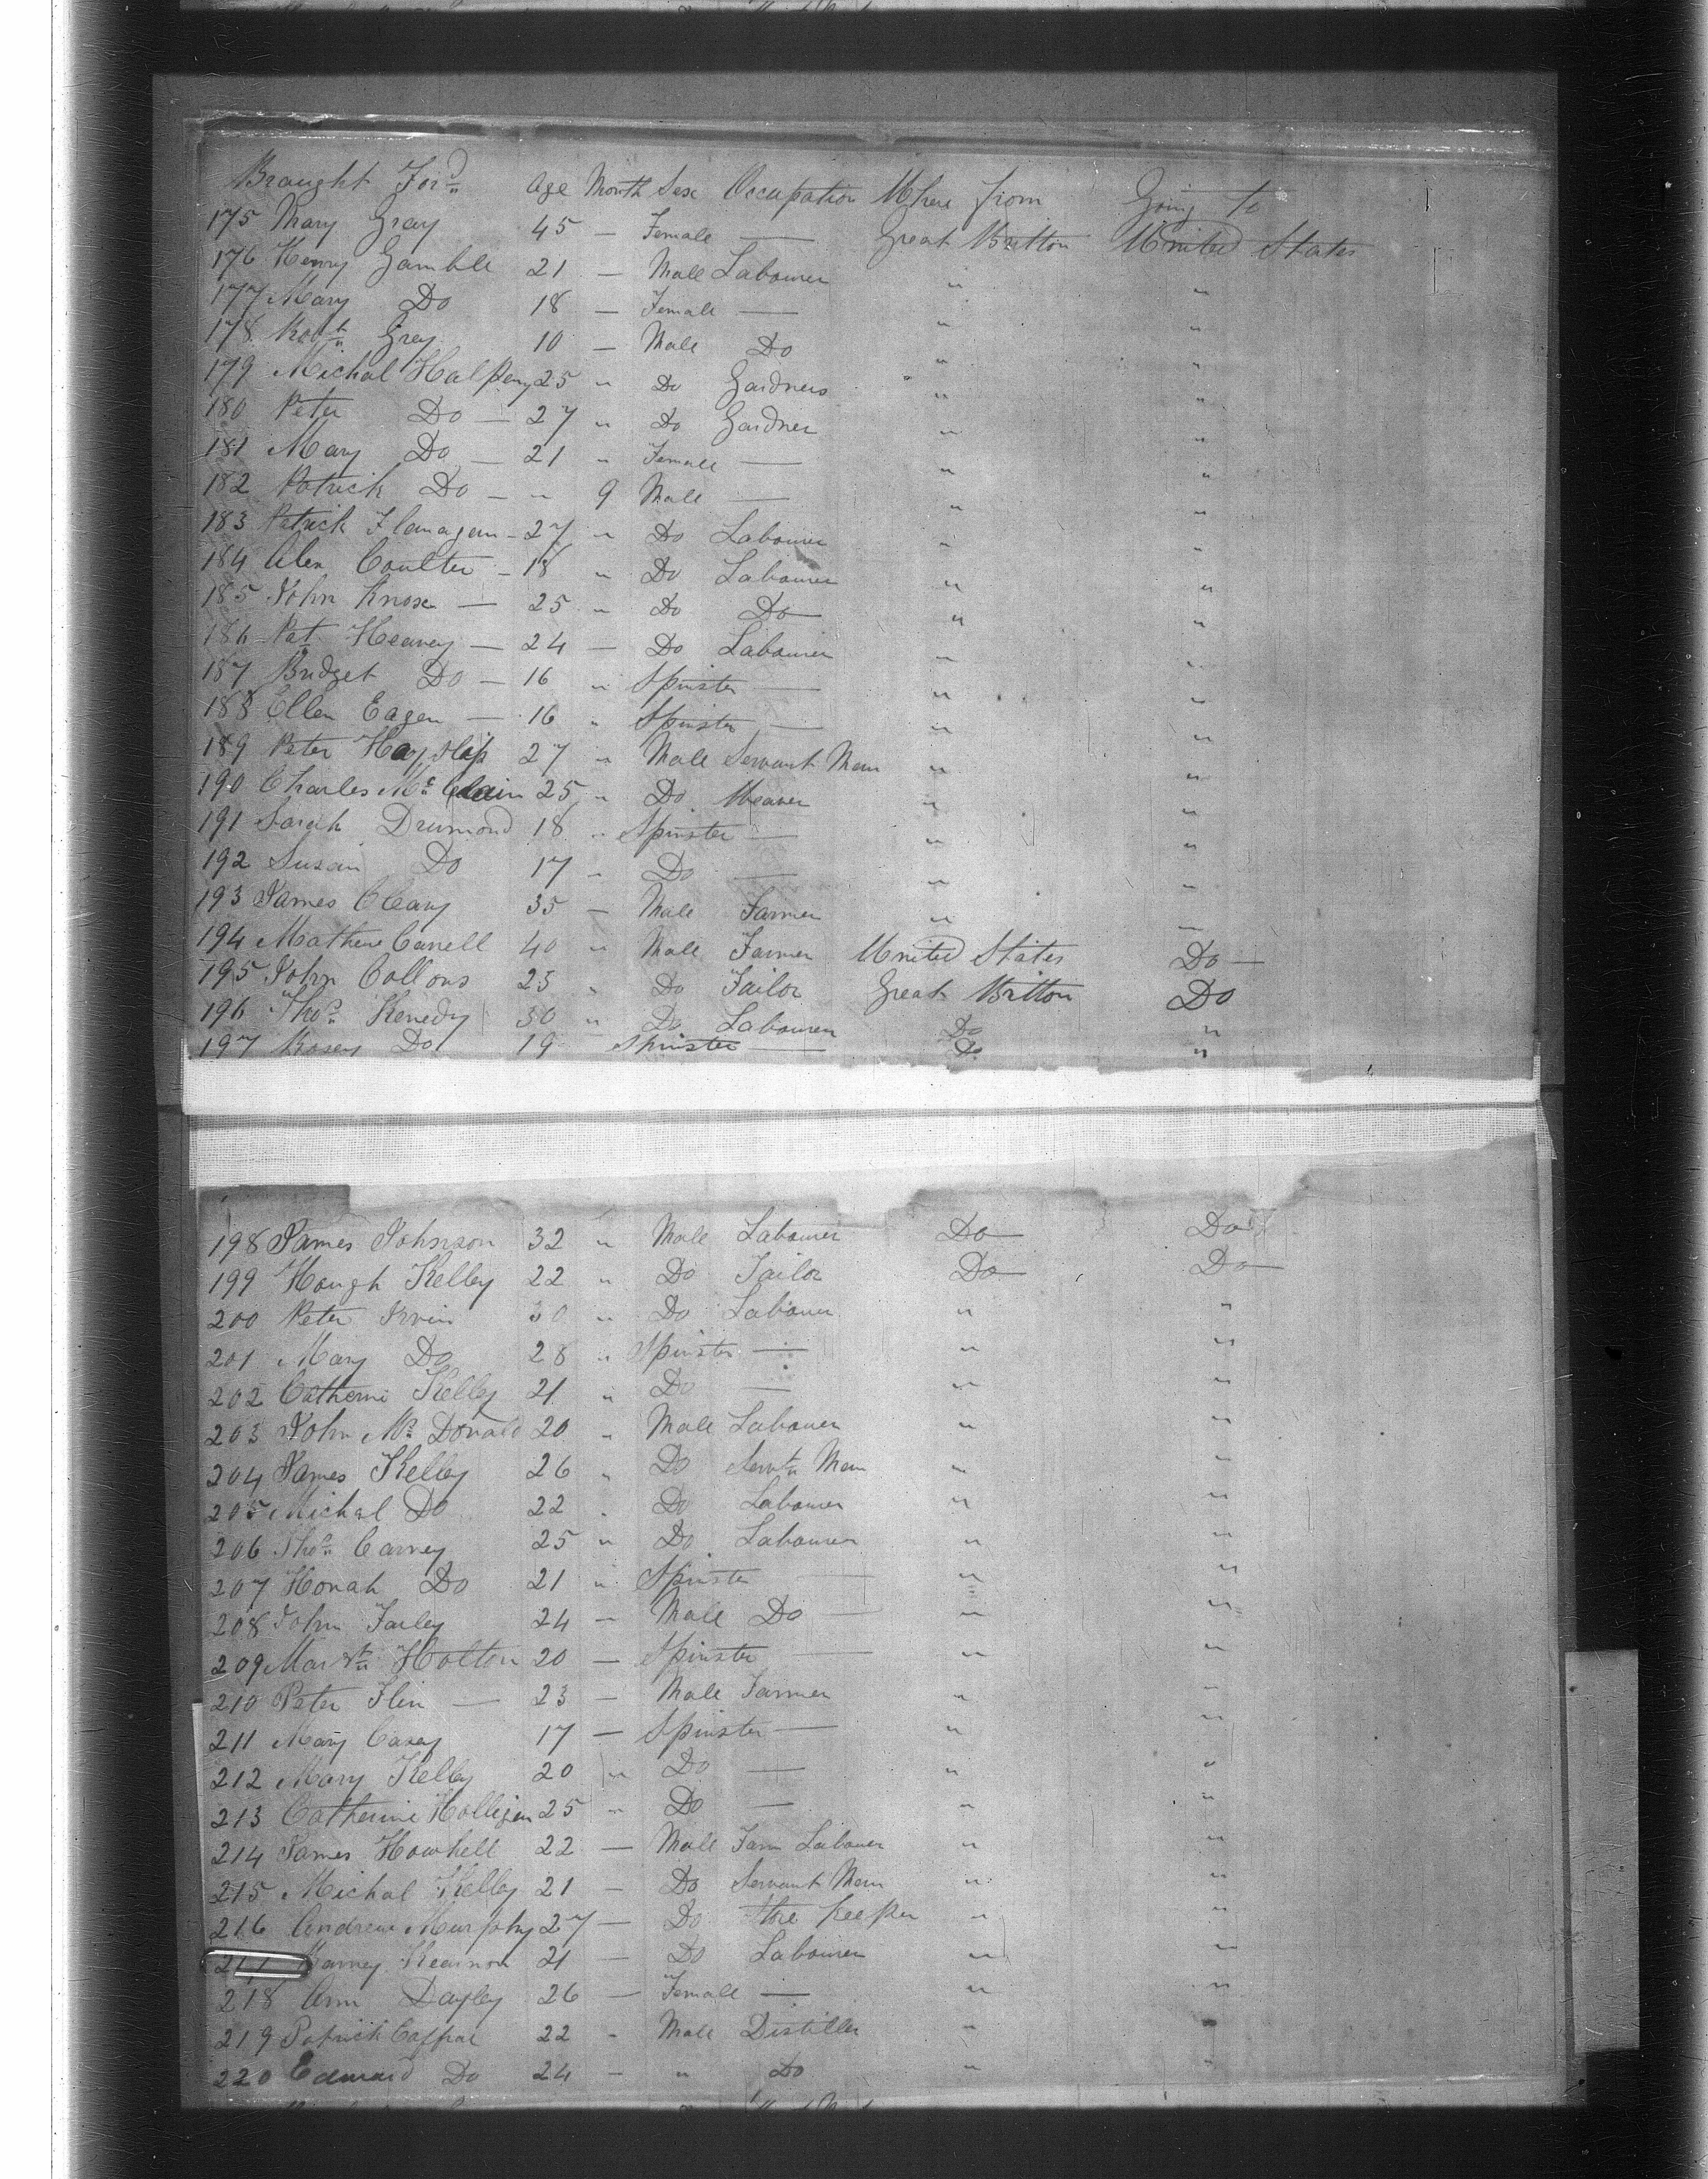 Braught Ford Age Month Sex Occupation Where from Going to
175 Mary Gray 45 — Female — Great Britton United States
176 Henry Gamble 21 — Male Labourer " "
177 Mary Do 18 — Female — " "
178 Robt Grey 10 — Male Do " "
179 Michal Halpeny 25 " Do Gardners " "
180 Peter Do — 27 " Do Gardner " "
181 Mary Do — 21 " Female — " "
182 Patrick Do — " 9 Male — " "
183 Patrick Flanagan — 27 " Do Labourer " "
184 Alex Coulter — 18 " Do Labourer " "
185 John Knox — 25 " Do Do " "
186 Pat Heavey — 24 — Do Labourer " "
187 Bridget Do — 16 " Spinster — " "
188 Ellen Eagen — 16 " Spinster — " "
189 Peter Hayslip 27 " Male Servant Man " "
190 Charles Mc Clain 25 " Do Weaver " "
191 Sarah Drumond 18 " Spinster — " "
192 Susan Do 17 " Do — " "
193 James Cleary 35 — Male Farmer " "
194 Mathew Carrell 40 " Male Farmer United States Do —
195 John Collons 25 " Do Tailor Great Britton Do
196 Thos Kenedy 30 " Do Labourer Do "
197 Rosey Do 19 Spinster — Do "
198 James Johnson 32 " Male Labourer Do Do
199 Hough Kelley 22 " Do Tailor Do Do
200 Peter Irvin 30 " Do Labourer " "
201 Mary Do 28 " Spinster — " "
202 Catherine Kelley 21 " Do — " "
203 John Mc Donald 20 " Male Labourer " "
204 James Kelley 26 " Do Servt Man " "
205 Michal Do 22 " Do Labourer " "
206 Thos Carney 25 " Do Labourer " "
207 Honah Do 21 " Spinster — " "
208 John Farley 24 — Male Do — " "
209 Marth Holton 20 — Spinster — " "
210 Peter Flin — 23 — Male Farmer " "
211 Mary Casey 17 — Spinster — " "
212 Mary Kelley 20 " Do — " "
213 Catherine Holligen 25 " Do — " "
214 James Howhell 22 — Male Farm Labourer " "
215 Michal Kelley 21 — Do Servant Man " "
216 Andrew Murphy 27 — Do Store keeper " "
217 Barney Kearnon 21 — Do Labourer " "
218 Ann Dayley 26 — Female — " "
219 Patrick Caffrae 22 " Male Distiller " "
220 Edward Do 24 — " Do " "